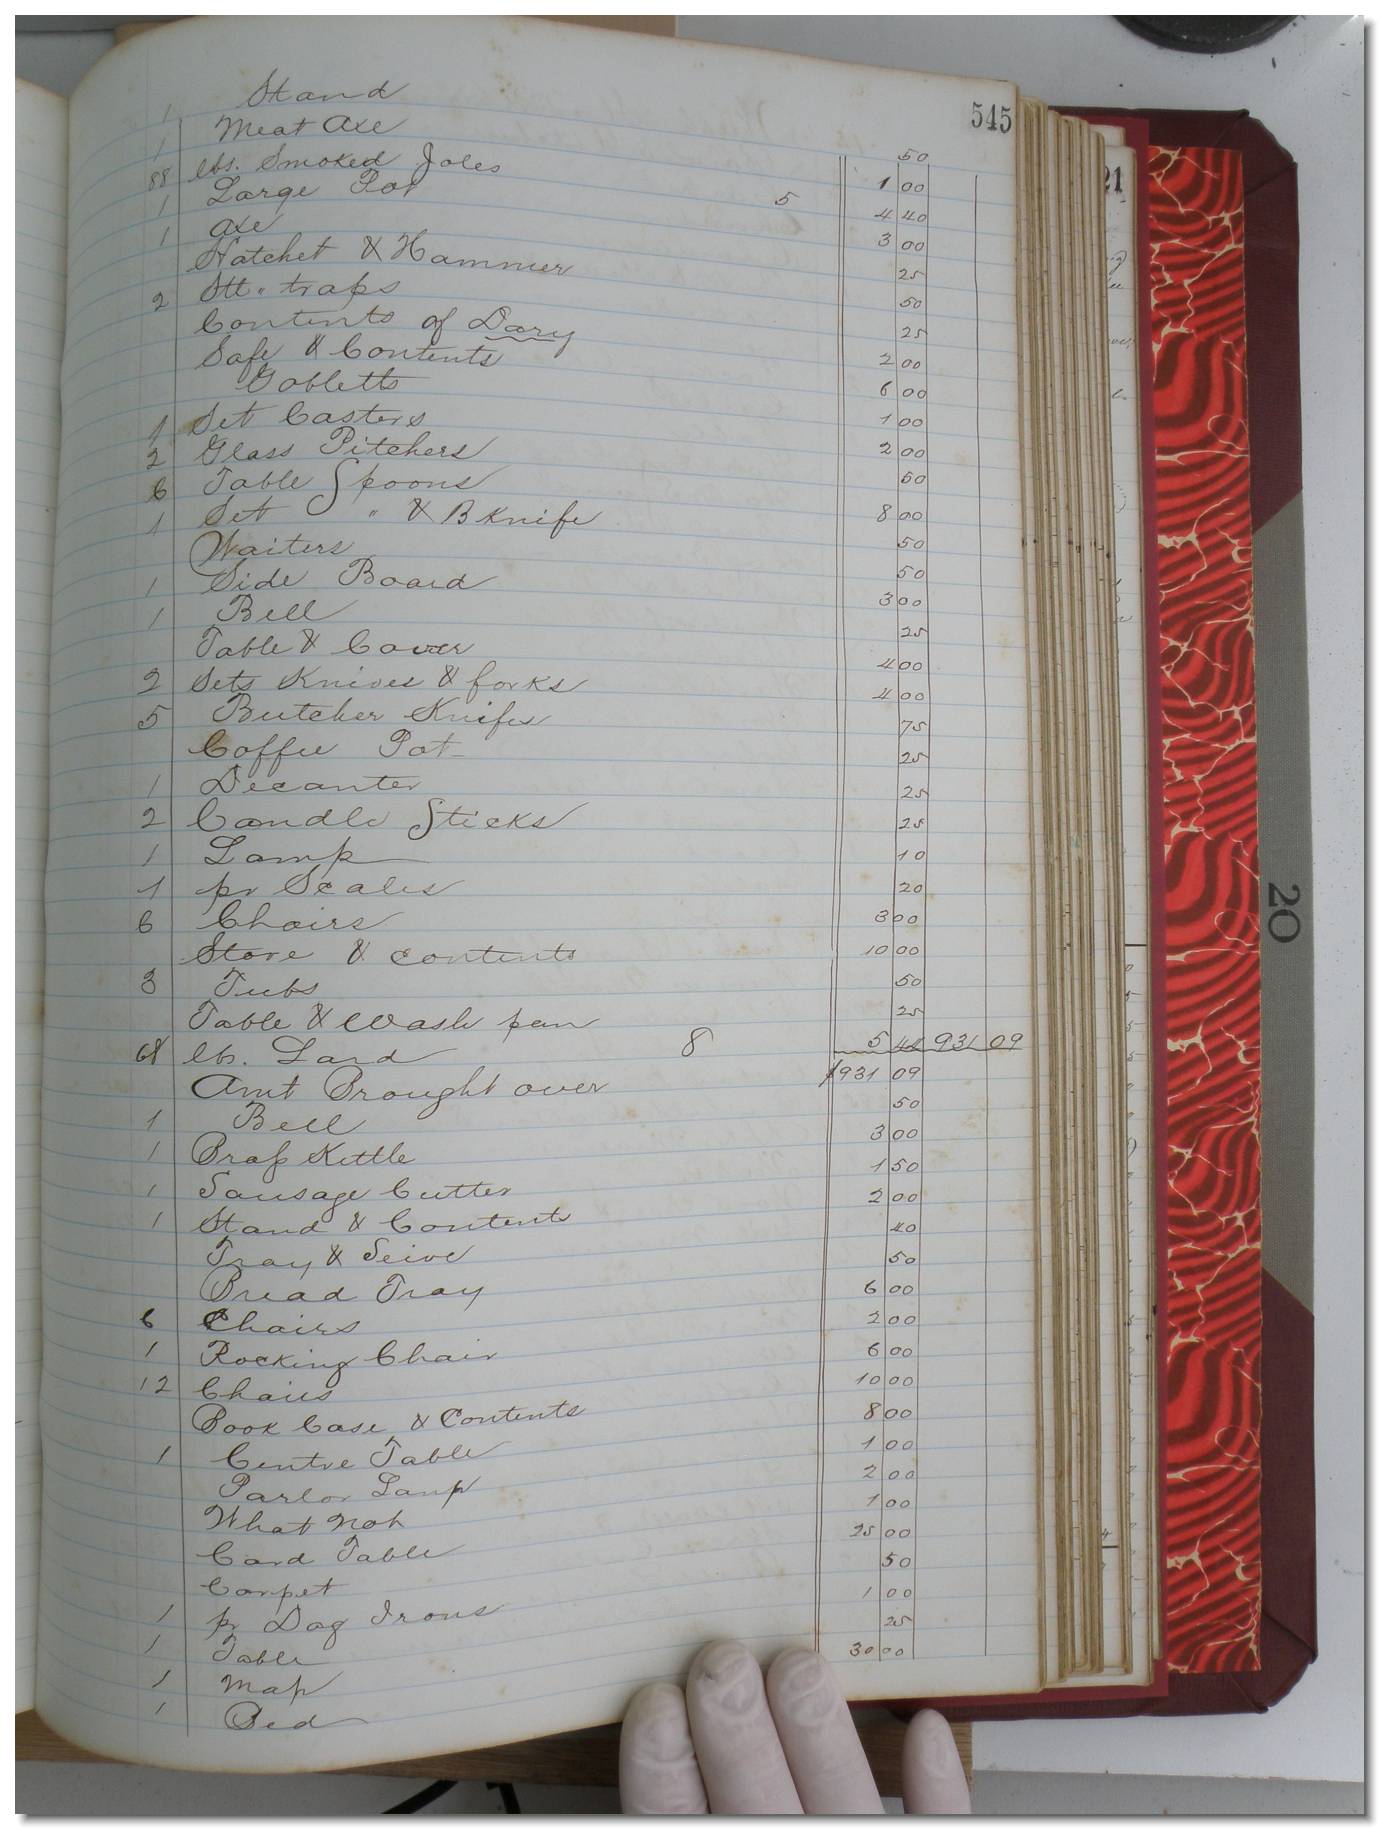 545
1 Stand 50
1 Meat Axe 1 00
88 lbs. Smoked Joles 5 4 40
1 Large Pot 3 00
1 Axe 25
Hatchet & Hammer 50
2 Stl. traps 25
Contents of Dary 2 00
Safe & Contents 6 00
Gobletts 1 00
1 Set Casters 2 00
2 Glass Pitchers 60
6 Table Spoons 8 00
1 Set " & B Knife 50
Waiters 50
1 Side Board 3 00
1 Bell 25
Table & Cover 4 00
2 Sets Knives & forks 4 00
5 Butcher Knifes 75
Coffee Pot 25
1 Decanter 25
2 Candle Sticks 25
1 Lamp 10
1 pr Scales 20
6 Chairs 3 00
Store & contents 10 00
3 Tubs 50
Table & Wash pan 25
68 lb. Lard 8 5 44 931 09
Amt Brought over $931 09
1 Bell 50
1 Brass Kettle 3 00
1 Sausage Cutter 1 50
1 Stand & Contents 2 00
Tray & Seive 40
Bread Tray 50
6 Chairs 6 00
1 Rocking Chair 2 00
12 Chairs 6 00
Book Case & Contents 10 00
1 Centre Table 8 00
Parlor Lamp 1 00
What not 2 00
Card Table 1 00
Carpet 25 00
1 pr Dog Irons 50
1 Table 1 00
1 Map 25
1 Bed 30 00
21
20